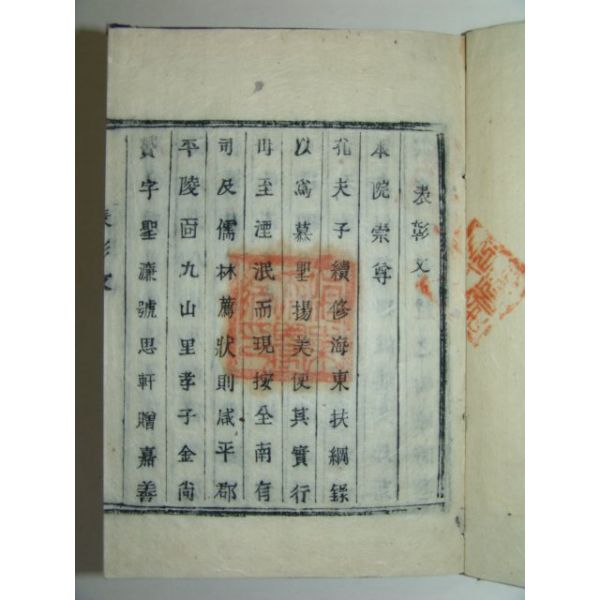 表彰文
本院崇尊
孔夫子續修海東扶綱錄
以寓慕聖揚美使其實行
毋至湮泯而現按全南有
司及儒林薦狀則咸平郡
平陵面九山里孝子金尙
贊字聖濂號思軒贈嘉善
表彰文